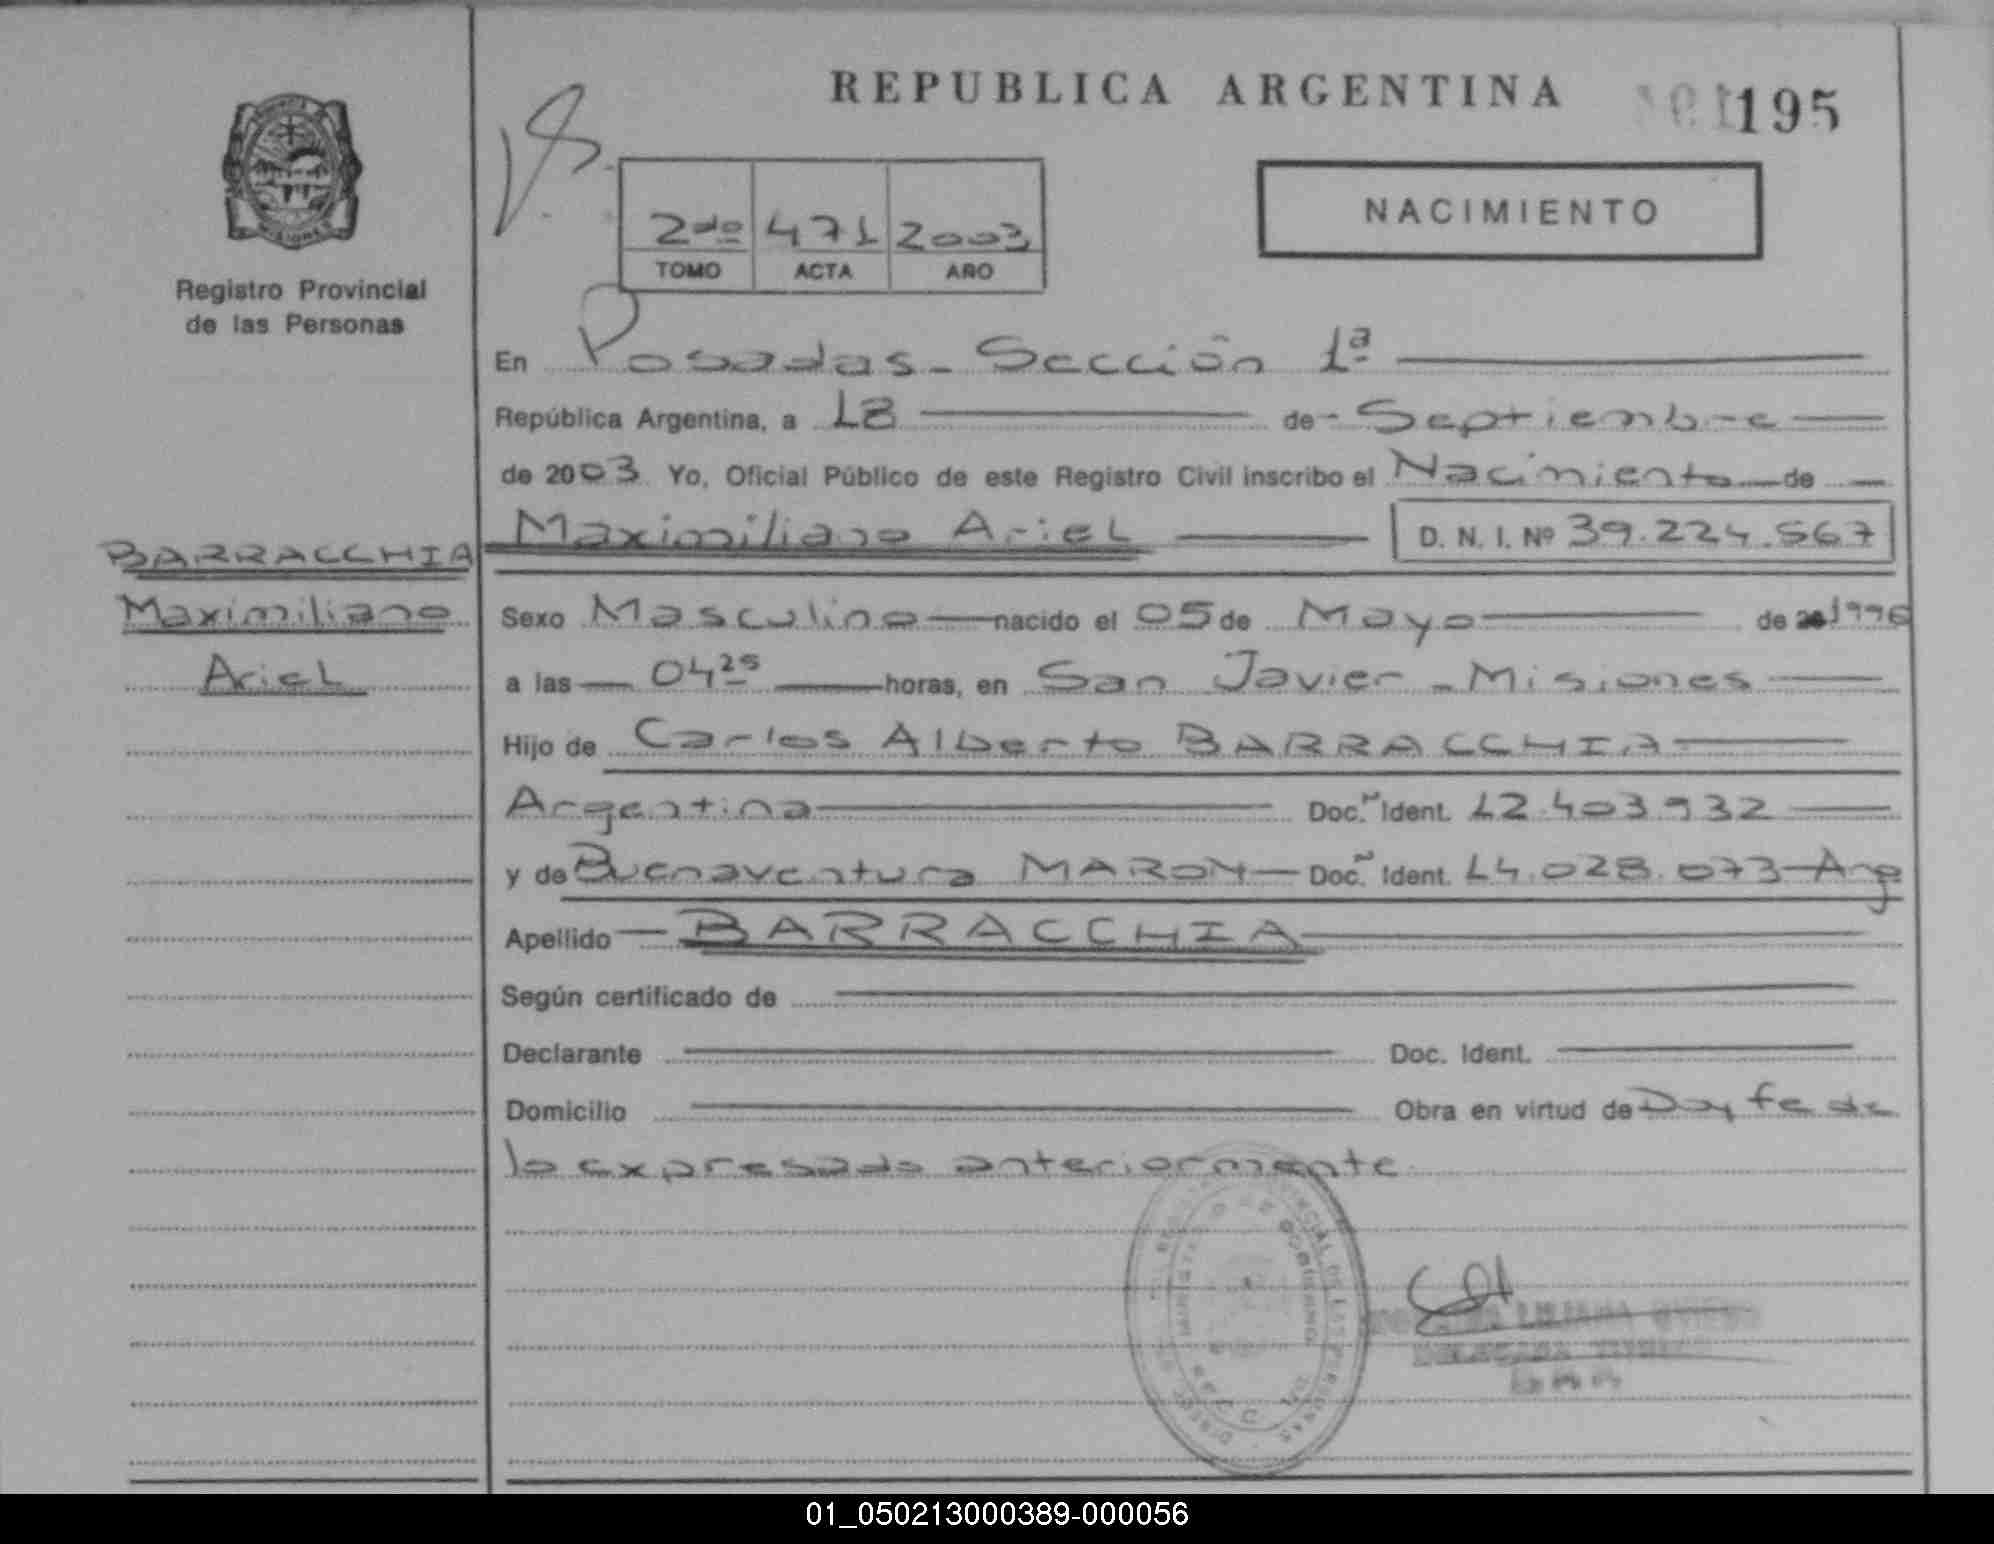 REPUBLICA ARGENTINA
195
NACIMIENTO
2do 471 2003
TOMO ACTA AÑO
Registro Provincial
de las Personas
En Posadas - Sección 1ª
República Argentina, a 18 de Septiembre
de 2003 Yo, Oficial Público de este Registro Civil inscribo el Nacimiento de
Maximiliano Ariel D. N. I. Nº 39.224.567
BARRACCHIA
Maximiliano
Ariel
Sexo Masculino nacido el 05 de Mayo de 1996
a las 04 25 horas, en San Javier - Misiones
Hijo de Carlos Alberto BARRACCHIA
Argentina Doc. Ident. 12.403.932
y de Buenaventura MARON Doc. Ident. 14.028.073 - Arg
Apellido BARRACCHIA
Según certificado de
Declarante Doc. Ident.
Domicilio Obra en virtud de Doy fe de
lo expresado anteriormente
LILIANA
01_050213000389-000056